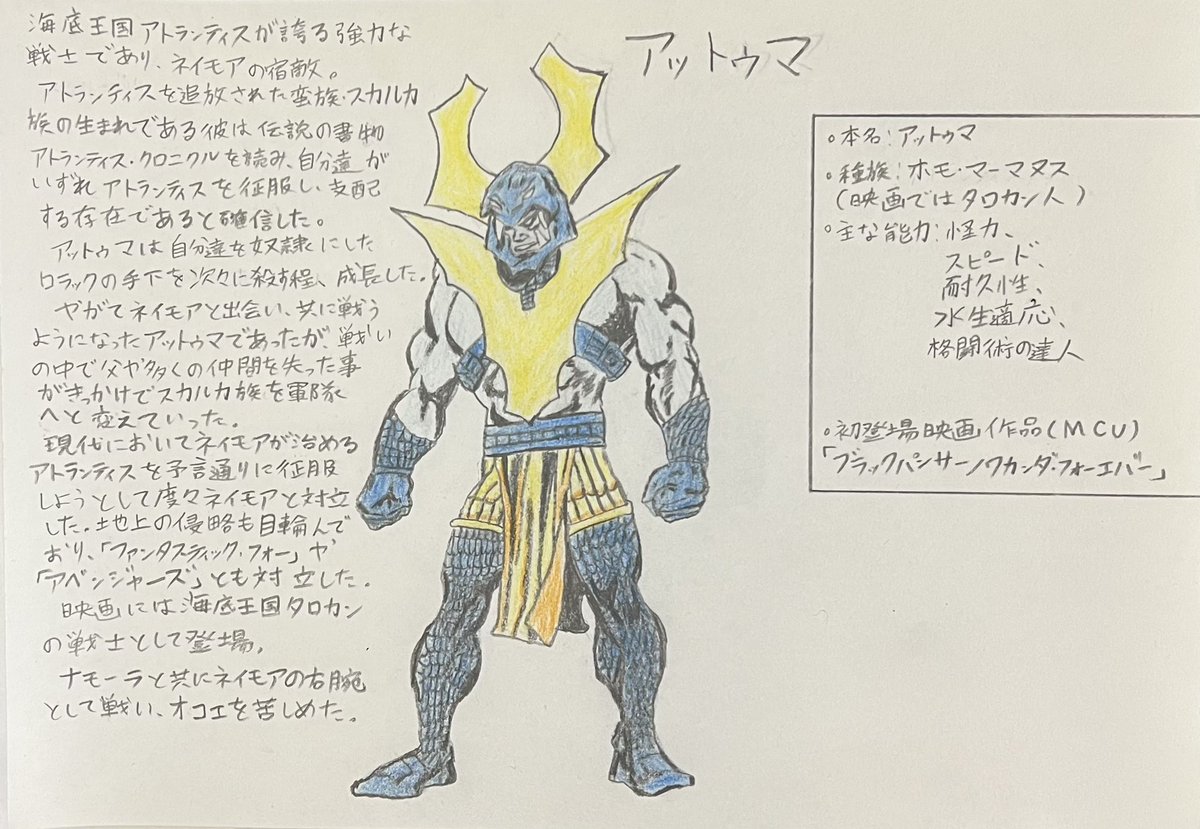 アットゥマ
海底王国アトランティスが誇る強力な
戦士であり、ネイモアの宿敵。
アトランティスを追放された蛮族・スカルカ
族の生まれである彼は伝説の書物
アトランティス・クロニクルを読み、自分達が
いずれアトランティスを征服し、支配
する存在であると確信した。
アットゥマは自分達を奴隷にした
ロラックの手下を次々に殺す程、成長した。
やがてネイモアと出会い、共に戦う
ようになったアットゥマであったが、戦い
の中で父や多くの仲間を失った事
がきっかけでスカルカ族を軍隊
へと変えていった。
現代においてネイモアが治める
アトランティスを予言通りに征服
しようとして度々ネイモアと対立
した。地上の侵略も目輪んで
おり、「ファンタスティック・フォー」や
「アベンジャーズ」とも対立した。
映画には海底王国タロカン
の戦士として登場。
ナモーラと共にネイモアの右腕
として戦い、オコエを苦しめた。
○本名:アットゥマ
○種族:ホモ・マーマヌス
(映画ではタロカン人)
○主な能力:怪力、
スピード、
耐久性、
水生適応、
格闘術の達人
○初登場映画作品(MCU)
「ブラックパンサー/ワカンダ・フォーエバー」